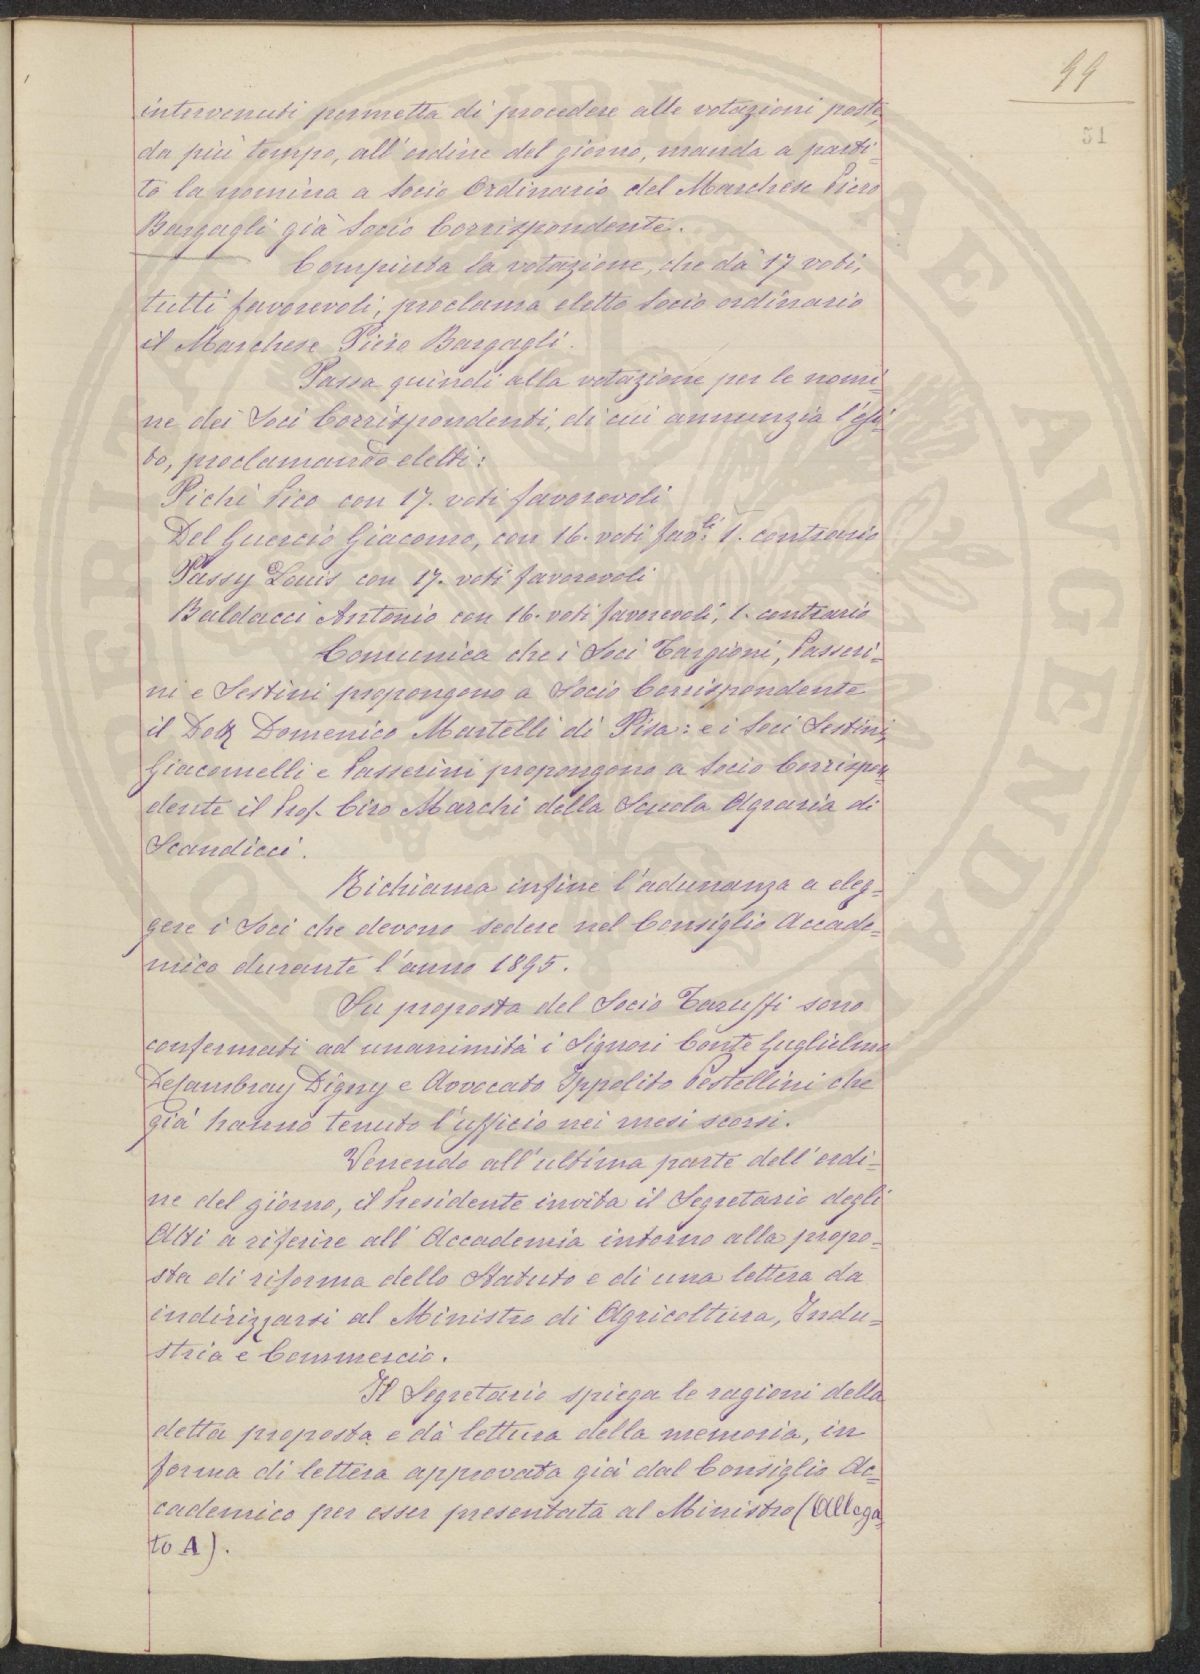 99
51
intervenuti permetta di procedere alle votazioni poste,
da più tempo, all'ordine del giorno, manda a parti-
to la nomina a Socio Ordinario del Marchese Piero
Bargagli già Socio Corrispondente.
Compiuta la votazione, che dà 17 voti,
tutti favorevoli, proclama eletto Socio ordinario
il Marchese Piero Bargagli.
Passa quindi alla votazione per le nomi-
ne dei Soci Corrispondenti, di cui annunzia l'esi-
to, proclamando eletti:
Pichi Pico con 17. voti favorevoli
Del Guercio Giacomo, con 16. voti fav.li 1. contrario
Passy Louis con 17. voti favorevoli
Baldacci Antonio con 16. voti favorevoli, 1. contrario
Comunica che i Soci Targioni, Passeri=
ni e Sestini propongono a Socio Corrispondente
il Dott. Domenico Martelli di Pisa: e i Soci Sestini,
Giacomelli e Passerini propongono a Socio Corrispon=
dente il Prof. Ciro Marchi della Scuola Agraria di
Scandicci.
Richiama infine l'adunanza a eleg=
gere i Soci che devono sedere nel Consiglio Accade=
mico durante l'anno 1895.
Su proposta del Socio Taruffi sono
confermati ad unanimità i Signori Conte Guglielmo
DeCambray Digny e Avvocato Ippolito Pestellini che
già hanno tenuto l'ufficio nei mesi scorsi.
Venendo all'ultima parte dell'ordi=
ne del giorno, il Presidente invita il Segretario degli
Atti a riferire all'Accademia intorno alla propo=
sta di riforma dello Statuto e di una lettera da
indirizzarsi al Ministro di Agricoltura, Indu=
stria e Commercio.
Il Segretario spiega le ragioni della
detta proposta e dà lettura della memoria, in
forma di lettera approvata già dal Consiglio Ac=
cademico per esser presentata al Ministro (Allega=
to A).